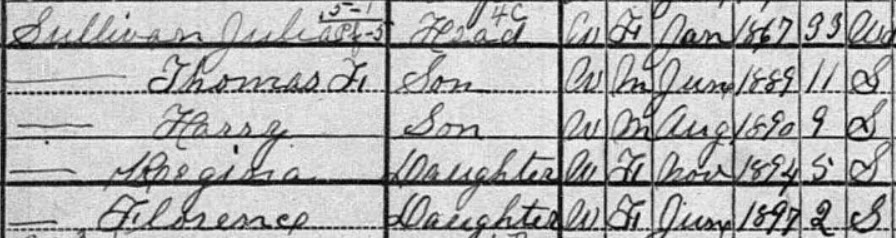 5-1 4C
Sullivan Julia Head W F Jan 1867 33 Wd
Thomas F. Son W M June 1889 11 S
Harry Son W M Aug 1890 9 S
Regina Daughter W F Nov 1894 5 S
Florence Daughter W F June 1897 2 S